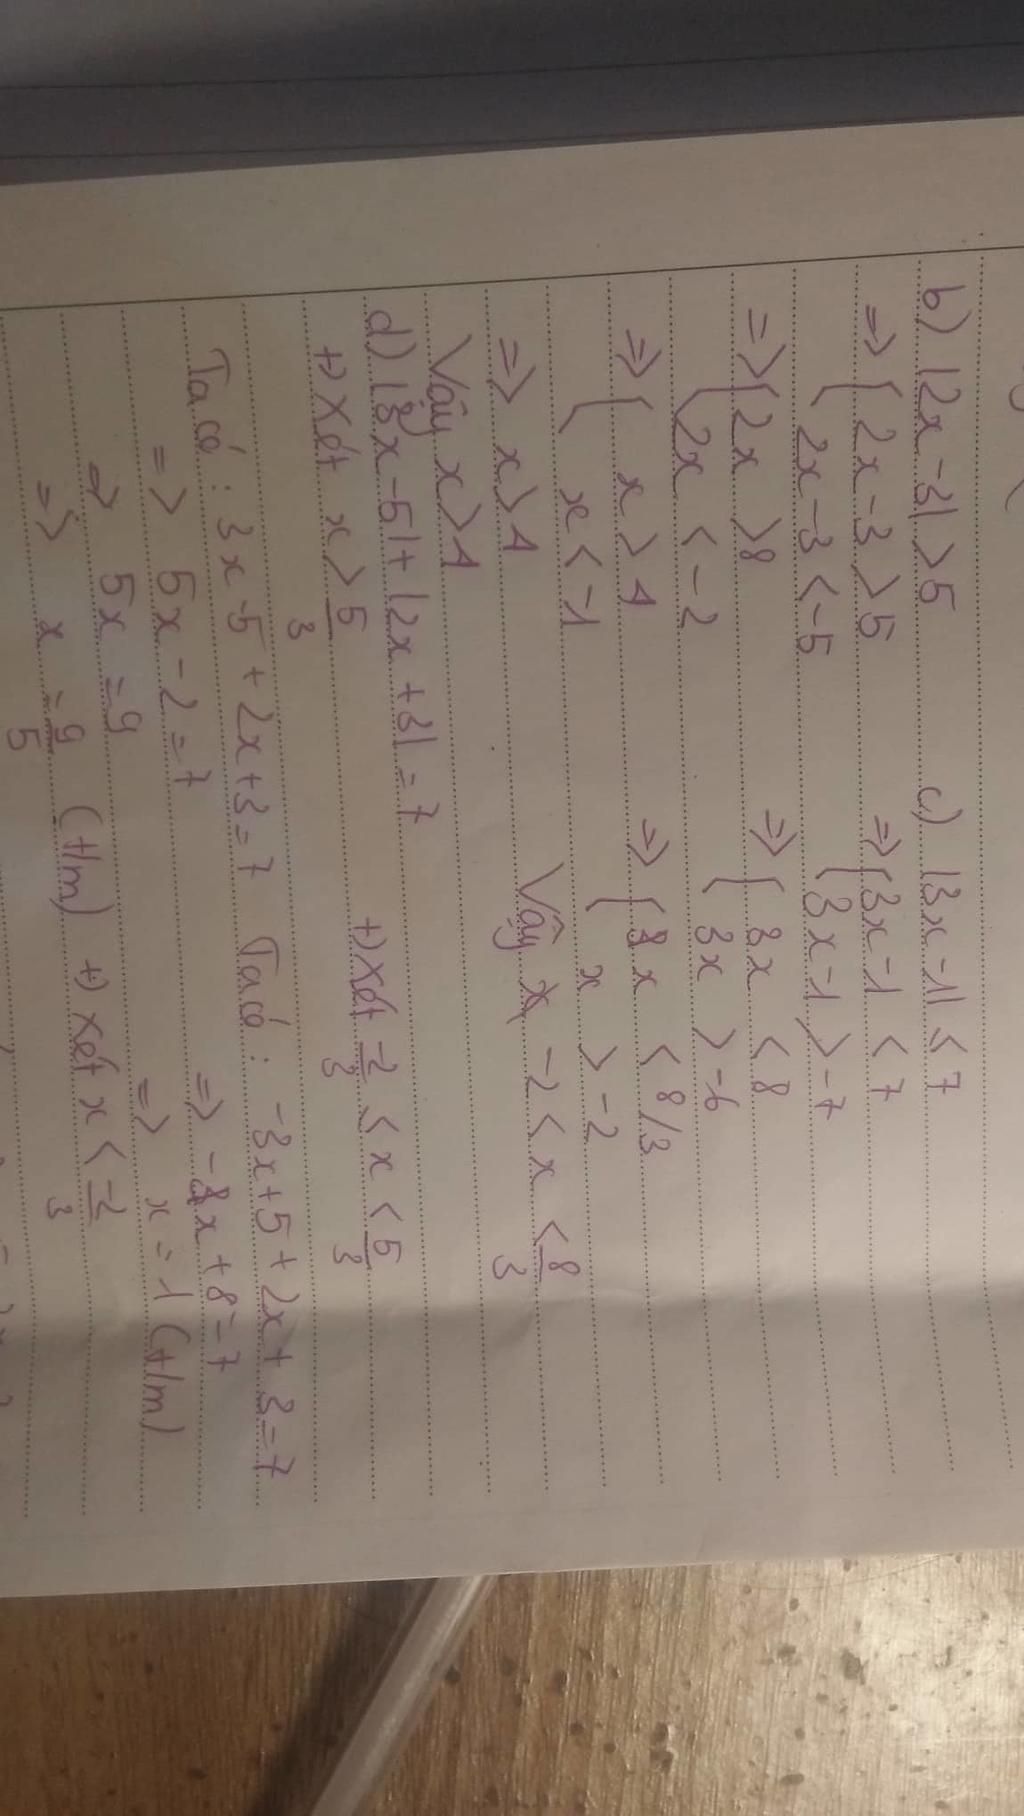 b) |2x - 3| > 5
=> { 2x - 3 > 5
{ 2x - 3 < -5
=> { 2x > 8
{ 2x < -2
=> { x > 4
{ x < -1
=> x > 4
Vậy x > 4
c) |3x - 1| ≤ 7
=> { 3x - 1 < 7
{ 3x - 1 > -7
=> { 3x < 8
{ 3x > -6
=> { x < 8/3
{ x > -2
Vậy -2 < x < 8/3
d) |3x - 5| + |2x + 3| = 7
+) Xét x > 5/3
Ta có : 3x - 5 + 2x + 3 = 7
=> 5x - 2 = 7
=> 5x = 9
=> x = 9/5 (t/m)
+) Xét -2/3 ≤ x < 5/3
Ta có : -3x + 5 + 2x + 3 = 7
=> -x + 8 = 7
=> x = 1 (t/m)
+) Xét x < -2/3